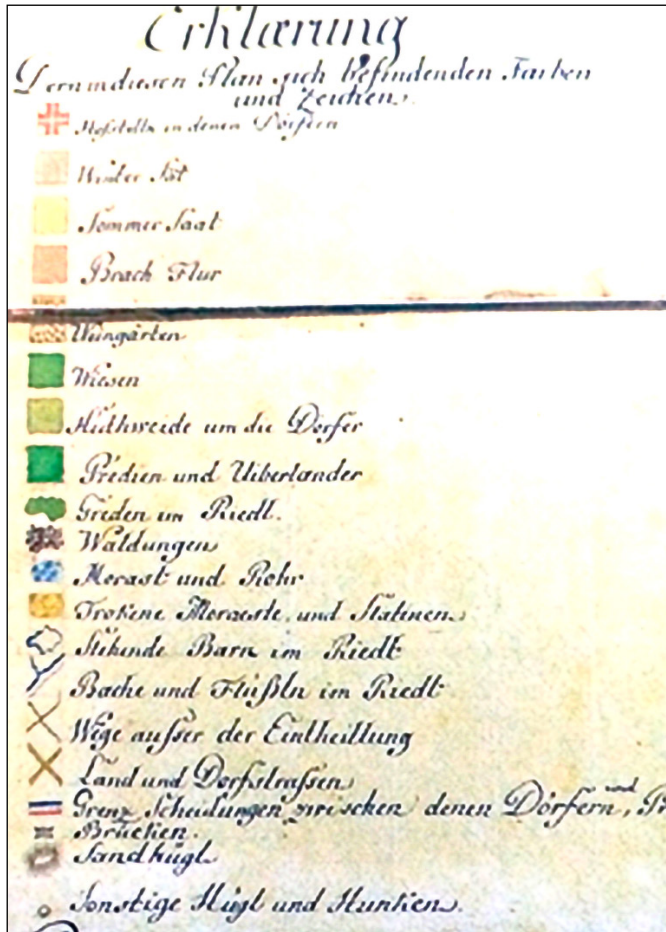 Erklærung
Der in diesen Plan sich befindenden Farben
und Zeichen.
in denen Dörfern
Winter Sat
Sommer Saat
Brach Flur
Weingärten
Wiesen
Huthweide um die Dörfer
Prédien und Uiberlander
Greden im Riedt.
Waldungen
Morast und Rohr
Trokene Moraeste und Slatinen
Stehende Barn im Riedt
Bache und Flüßln im Riedt
Wege ausser der Eintheillung
Land und Dorfstrassen
Grenz Scheidungen zwischen denen Dörfern, und Pr
Brücken.
Sandhügl
Sonstige Hügl und Hunken